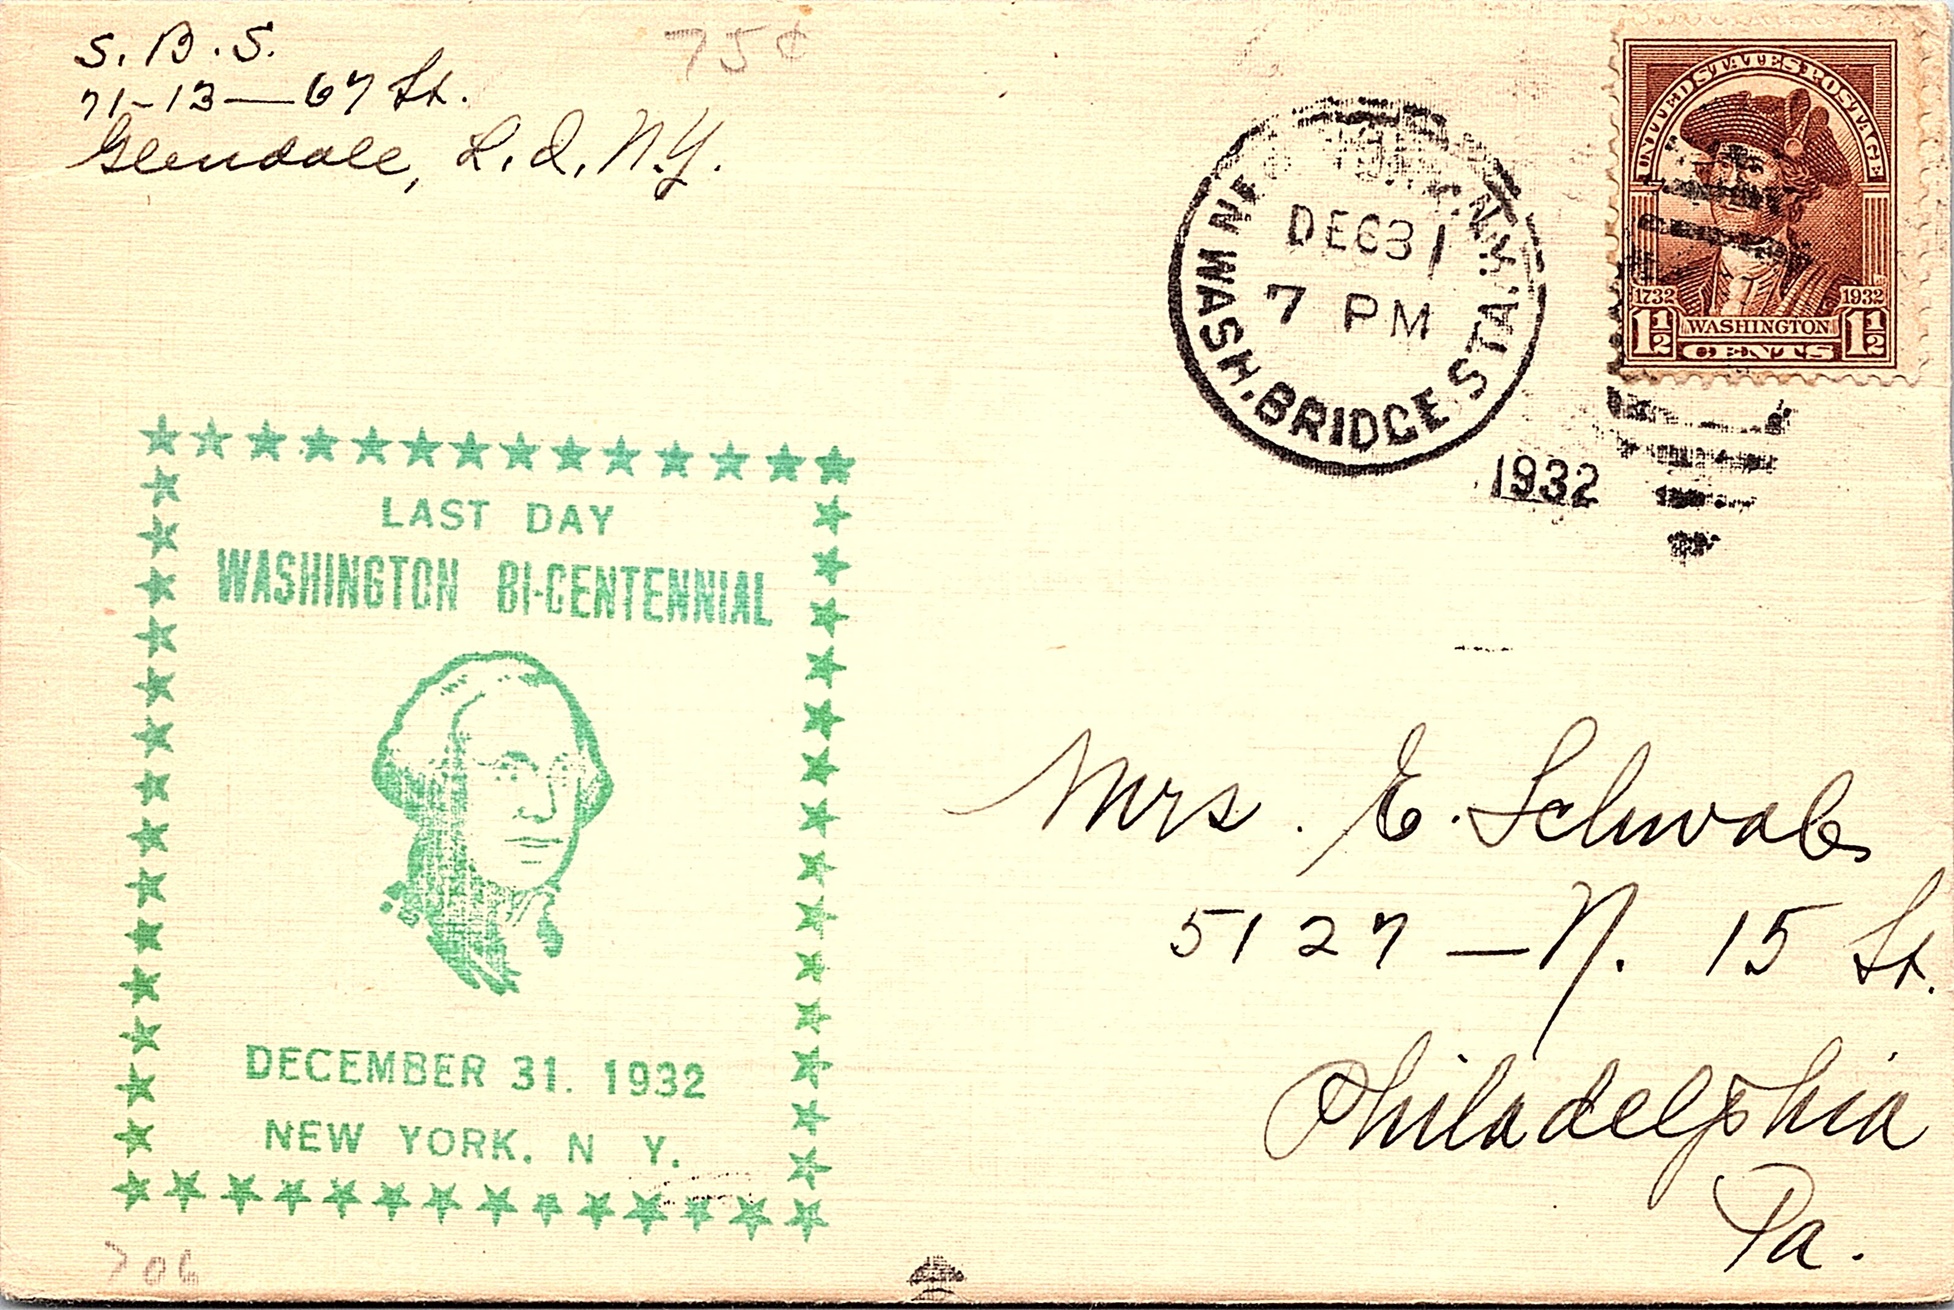 S. B. S.
71-13—67 St.
Glendale, L. I. N.Y.
75¢
DEC 31
7 PM
WASH. BRIDGE STA.
1932
UNITED STATES POSTAGE
1732 1932
1½ WASHINGTON 1½
CENTS
LAST DAY
WASHINGTON BI-CENTENNIAL
DECEMBER 31. 1932
NEW YORK. N Y.
Mrs. E. Schwab
5127—N. 15 St.
Philadelphia
Pa.
706